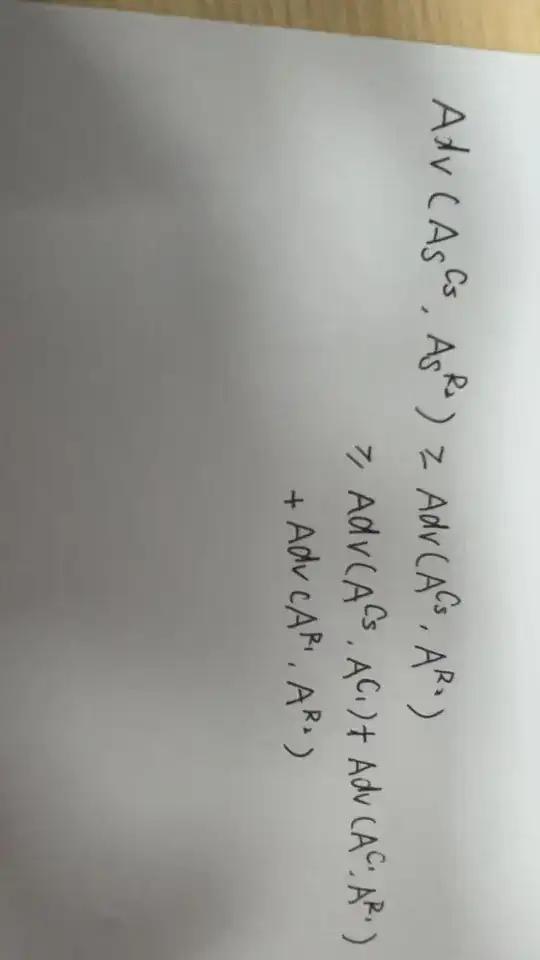 Adv(A_S^{C_S}, A_S^{R_2}) ≥ Adv(A^{C_S}, A^{R_2})
≥ Adv(A^{C_S}, A^{C_1}) + Adv(A^{C_1}, A^{R_1})
+ Adv(A^{R_1}, A^{R_2})